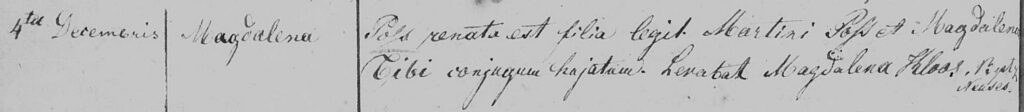 4ta Decembris Magdalena Poss renata est filia legit. Martini Poss et Magdalena
Tibi conjugum hujatum. Levabat Magdalena Kloos.
Neuses.